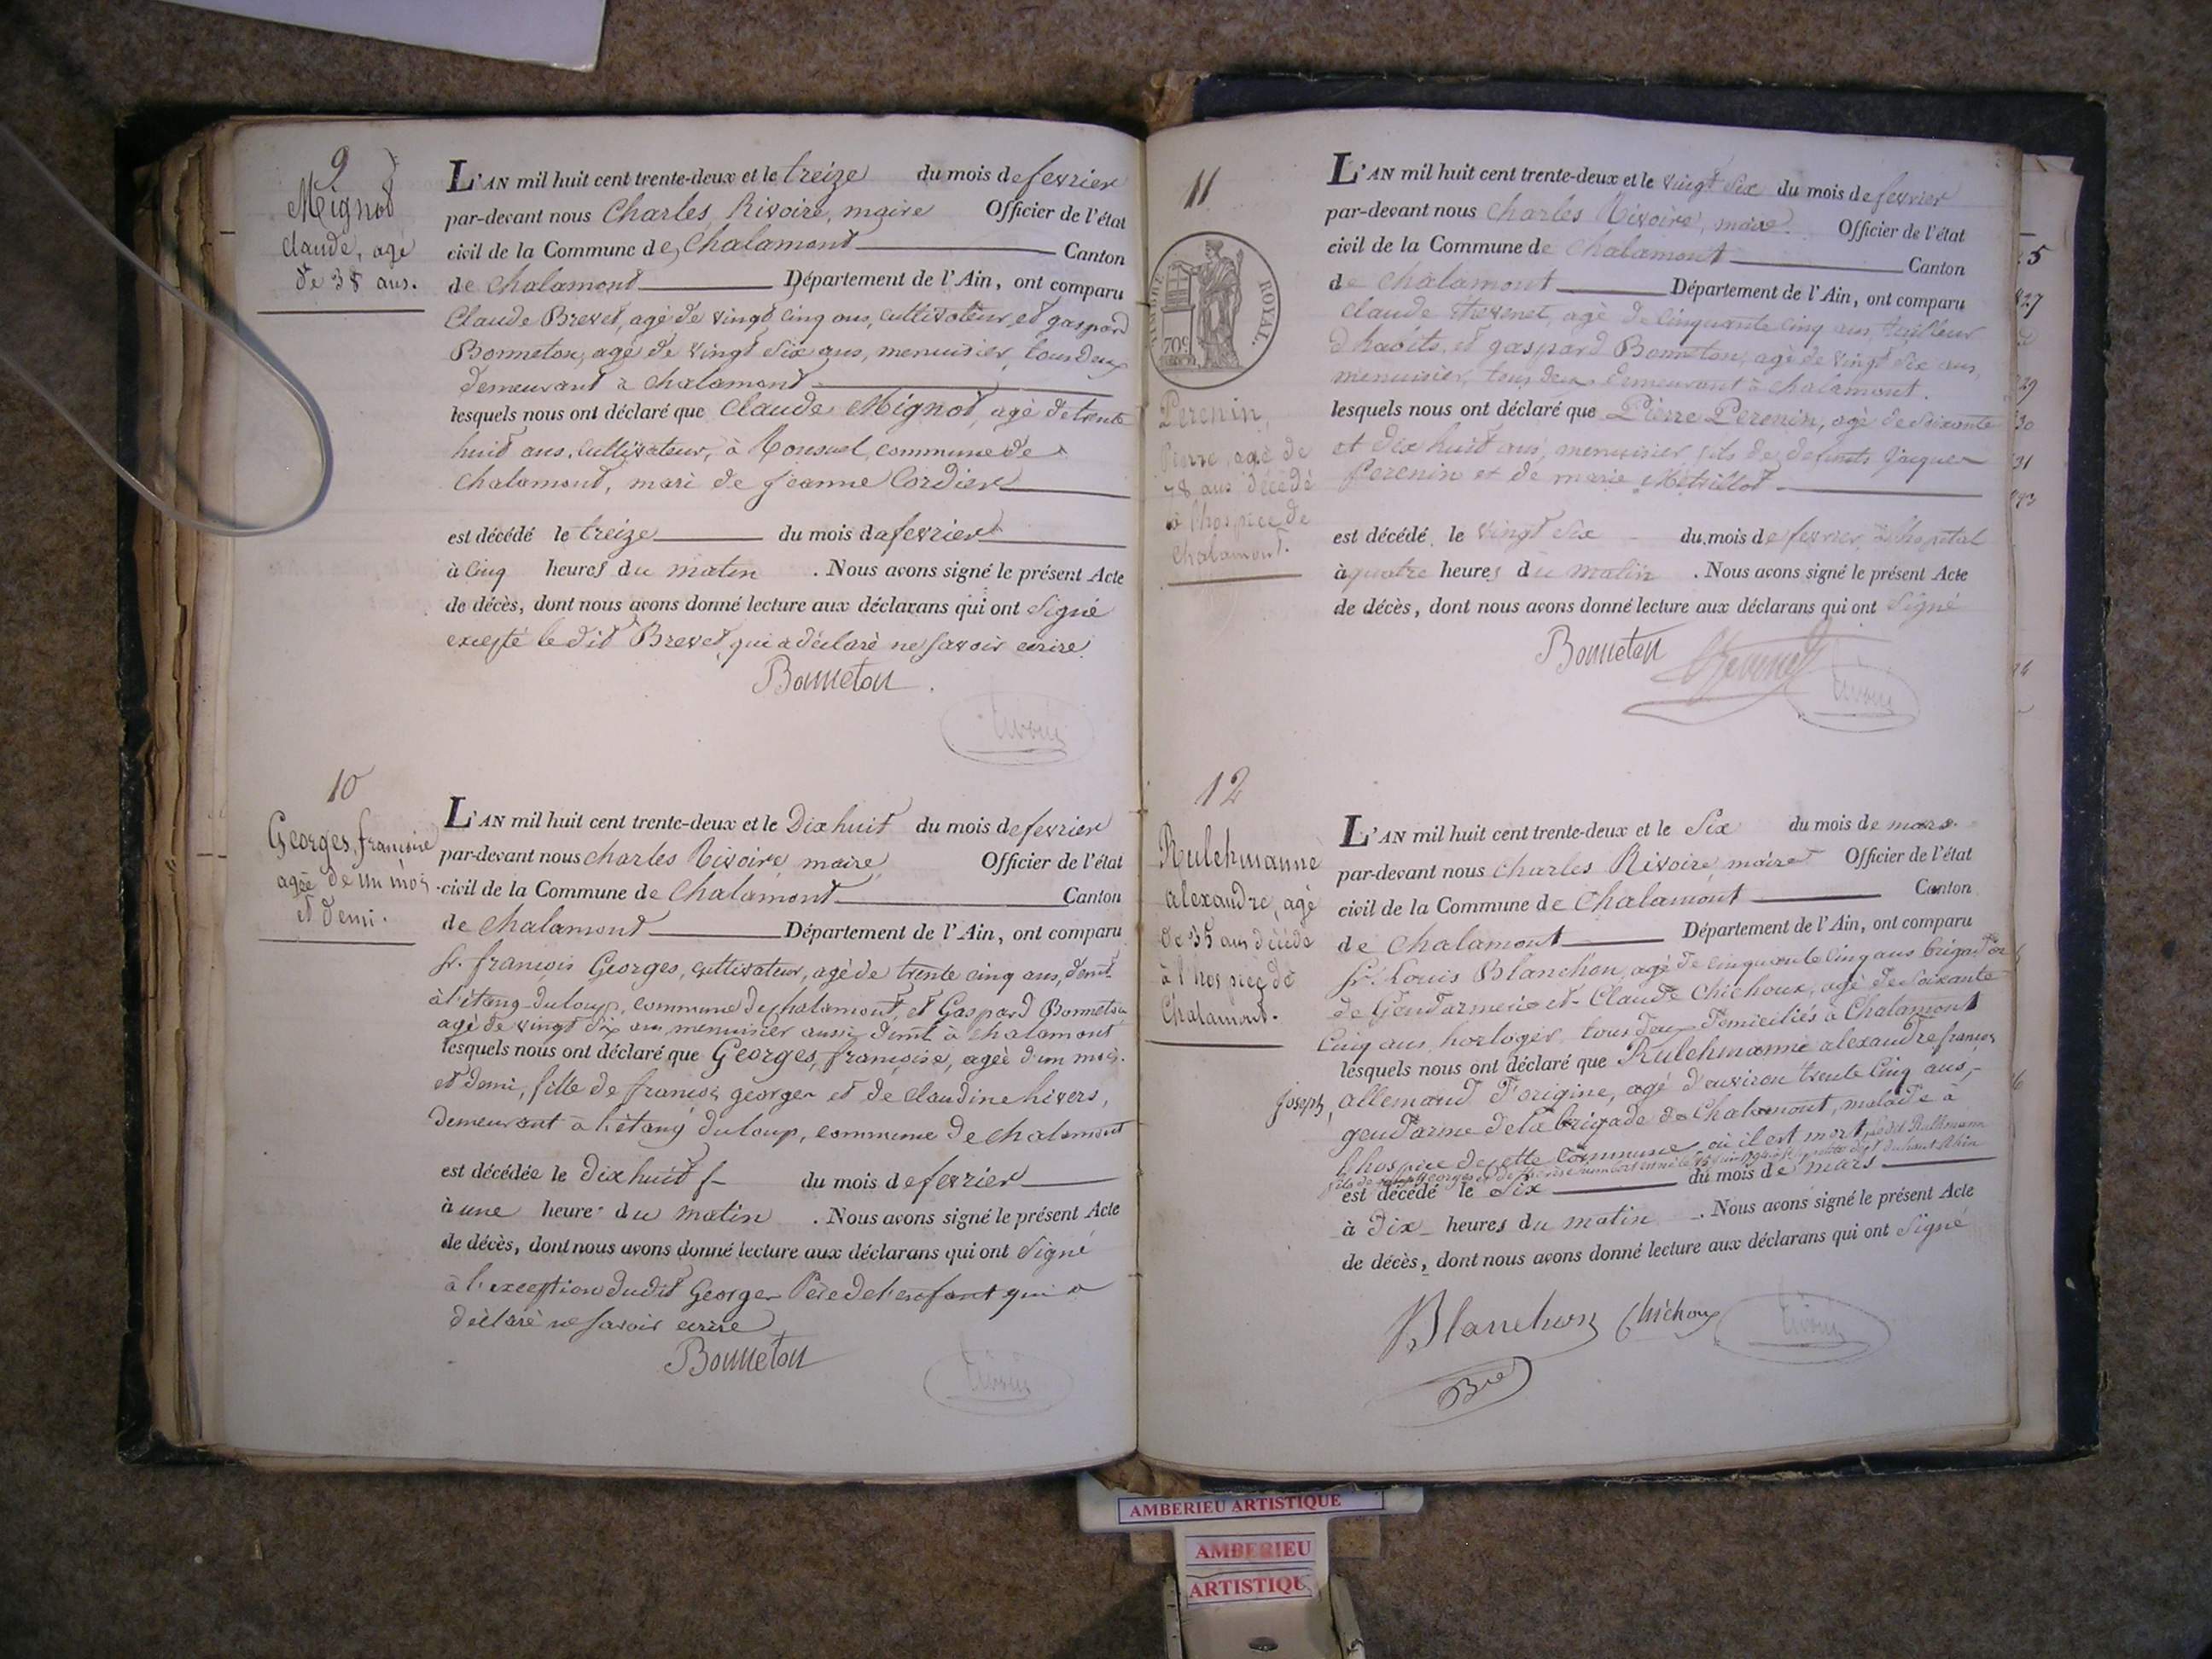 9
Mignot
Claude, agé
de 38 ans.
L'AN mil huit cent trente-deux et le treize du mois de fevrier
par-devant nous Charles Rivoire, maire Officier de l'état
civil de la Commune de Chalamont Canton
de Chalamont Département de l'Ain, ont comparu
Claude Brevet, agé de vingt cinq ans, cultivateur, et gaspard
Bonneton, agé de vingt six ans, menuisier, tous deux
demeurant à Chalamont
lesquels nous ont déclaré que Claude Mignot, agé de trente
huit ans, cultivateur, à commune de
Chalamont, mari de jeanne Cordier
est décédé le treize du mois de fevrier
à Cinq heures du matin . Nous avons signé le présent Acte
de décès, dont nous avons donné lecture aux déclarans qui ont signé
excepté le dit Brevet, qui a déclaré ne savoir ecrire.
Bonneton
10
Georges, françoise
agée de un mois
et demi.
L'AN mil huit cent trente-deux et le Dix huit du mois de fevrier
par-devant nous Charles Rivoire, maire Officier de l'état
civil de la Commune de Chalamont Canton
de Chalamont Département de l'Ain, ont comparu
Sr. francois Georges, cultivateur, agé de trente cinq ans, demt.
à l'étang du loup, commune de Chalamont, et Gaspard Bonneton
agé de vingt six ans menuisier aussi demt. à Chalamont
lesquels nous ont déclaré que Georges, françoise, agée d'un mois
et demi, fille de francois georges et de Claudine hivers,
demeurant à l'étang du loup, commune de Chalamont
est décédée le Dix huit du mois de fevrier
à une heure du matin . Nous avons signé le présent Acte
de décès, dont nous avons donné lecture aux déclarans qui ont signé
à l'exception du dit Georges Père de l'enfant qui a
déclaré ne savoir ecrire
Bonneton
11
TIMBRE ROYAL.
709
Perenin,
Pierre, agé de
78 ans décédé
à l'hospice de
Chalamont.
L'AN mil huit cent trente-deux et le vingt six du mois de fevrier
par-devant nous Charles Rivoire, maire Officier de l'état
civil de la Commune de Chalamont Canton
de Chalamont Département de l'Ain, ont comparu
Claude Thevenet, agé de Cinquante cinq ans, tailleur
d'habits, et gaspard Bonneton, agé de vingt six ans,
menuisier, tous deux demeurant à Chalamont.
lesquels nous ont déclaré que Pierre Perenin, agé de Soixante
et dix huit ans, menuisier fils de defunts Jacques
Perenin et de marie Metrillot
est décédé le vingt six du mois de fevrier à l'hopital
à quatre heures du matin . Nous avons signé le présent Acte
de décès, dont nous avons donné lecture aux déclarans qui ont signé
Bonneton Thevenet
12
Rulehmanne
alexandre, agé
de 35 ans décédé
à l'hospice de
Chalamont.
L'AN mil huit cent trente-deux et le Six du mois de mars.
par-devant nous Charles Rivoire, maire Officier de l'état
civil de la Commune de Chalamont Canton
de Chalamont Département de l'Ain, ont comparu
Sr. Louis Blanchon, agé de cinquante cinq ans brigadier
de Gendarmerie et Claude Chichoux, agé de soixante
Cinq ans horloger tous deux domiciliés à Chalamont
lesquels nous ont déclaré que Rulehmanne alexandre françois
Joseph, allemand d'origine, agé d'environ trente Cinq ans,
gendarme de la brigade de Chalamont, malade à
l'hospice de cette Commune où il est mort, le dit
fils de Georges et de du haut Rhin
est décédé le Six du mois de mars
à Dix heures du matin . Nous avons signé le présent Acte
de décès, dont nous avons donné lecture aux déclarans qui ont signé
Blanchon Chichoux
Bre
5
AMBERIEU ARTISTIQUE
AMBERIEU
ARTISTIQU